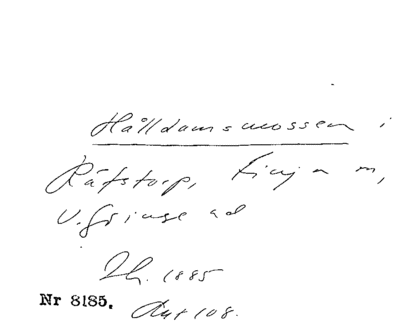 Hålldamsmossen i
Räfstorp, Finja m,
V. Göinge ad
Ih. 1885
Nr 8185. Art 108.